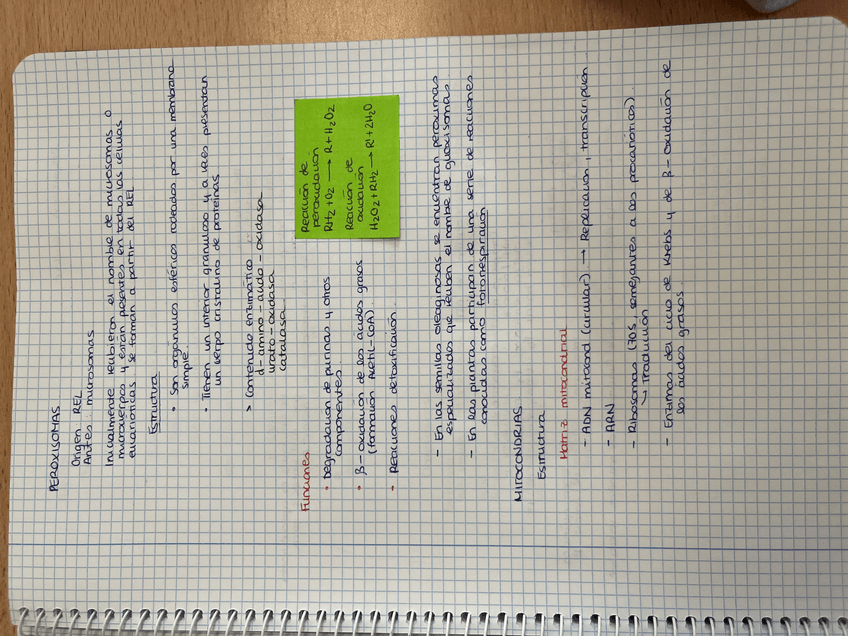 PEROXISOMAS
Origen REL
Antes: microsomas
Inicialmente recibieron el nombre de microsomas o
microcuerpos y están presentes en todas las células
eucarióticas. Y se forman a partir del REL
Estructura
• Son orgánulos esféricos rodeados por una membrana
simple.
• Tienen un interior granuloso y a veces presentan
un cuerpo cristalino de proteínas.
> Contenido enzimático
d-amino-ácido-oxidasa
urato-oxidasa
catalasa
Funciones
• Degradación de purinas y otros
componentes.
• β-oxidación de los ácidos grasos
(formación Acetil-CoA).
• Reacciones detoxificación.
Reacción de
peroxidación
RH₂ + O₂ → R + H₂O₂
Reacción de
oxidación
H₂O₂ + RH₂ → R' + 2H₂O
- En las semillas oleaginosas se encuentran peroximas
especializados que reciben el nombre de glioxisomas
- En las plantas participan de una serie de reacciones
conocidas como fotorrespiración
MITOCONDRIAS
Estructura
Matriz mitocondrial
- ADN mitocond (circular) → Replicación, transcripción
- ARN
- Ribosomas (70s, semejantes a los procarióticos).
↳ Traducción
- Enzimas del ciclo de Krebs y de β-oxidación de
los ácidos grasos